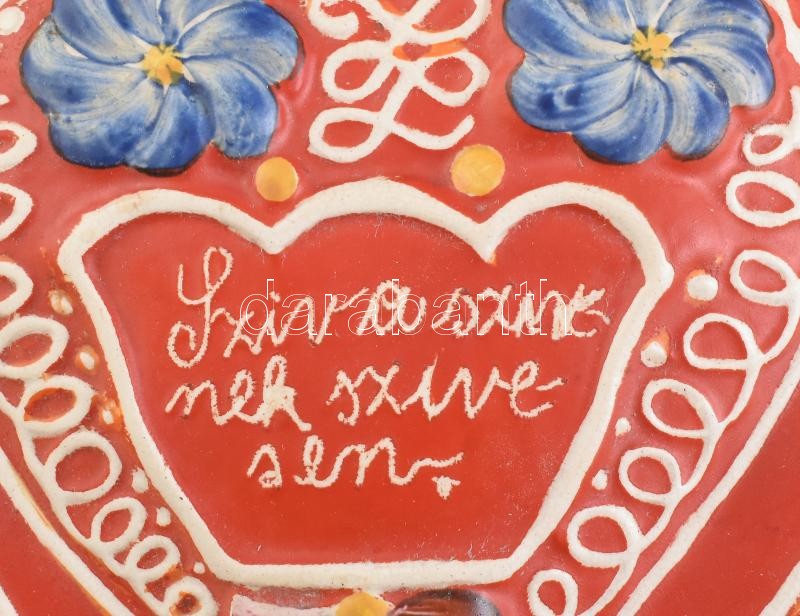 Sziv a szive-
nek szive-
sen.
darabanth